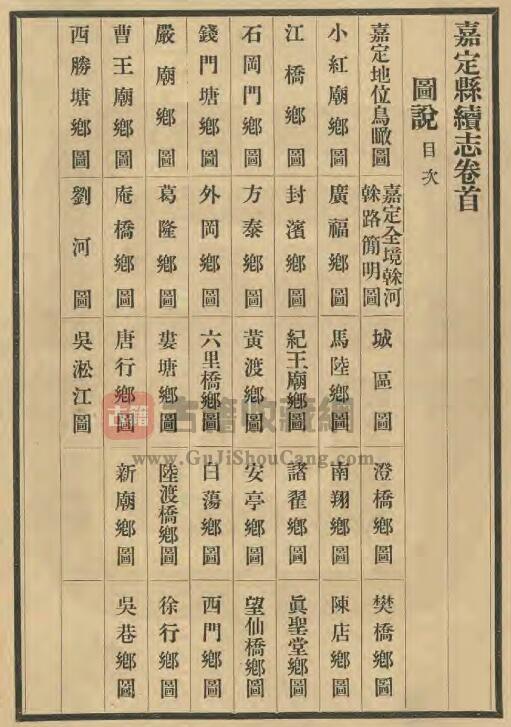 嘉定縣續志卷首
圖說 目次
嘉定地位鳥瞰圖 嘉定全境榦河榦路簡明圖 城區圖 澄橋鄉圖 樊橋鄉圖
小紅廟鄉圖 廣福鄉圖 馬陸鄉圖 南翔鄉圖 陳店鄉圖
江橋鄉圖 封濱鄉圖 紀王廟鄉圖 諸翟鄉圖 眞聖堂鄉圖
石岡門鄉圖 方泰鄉圖 黃渡鄉圖 安亭鄉圖 望仙橋鄉圖
錢門塘鄉圖 外岡鄉圖 六里橋鄉圖 白蕩鄉圖 西門鄉圖
嚴廟鄉圖 葛隆鄉圖 婁塘鄉圖 陸渡橋鄉圖 徐行鄉圖
曹王廟鄉圖 庵橋鄉圖 唐行鄉圖 新廟鄉圖 吳巷鄉圖
西勝塘鄉圖 劉河圖 吳淞江圖
古籍 古籍收藏網
www.GuJiShouCang.com